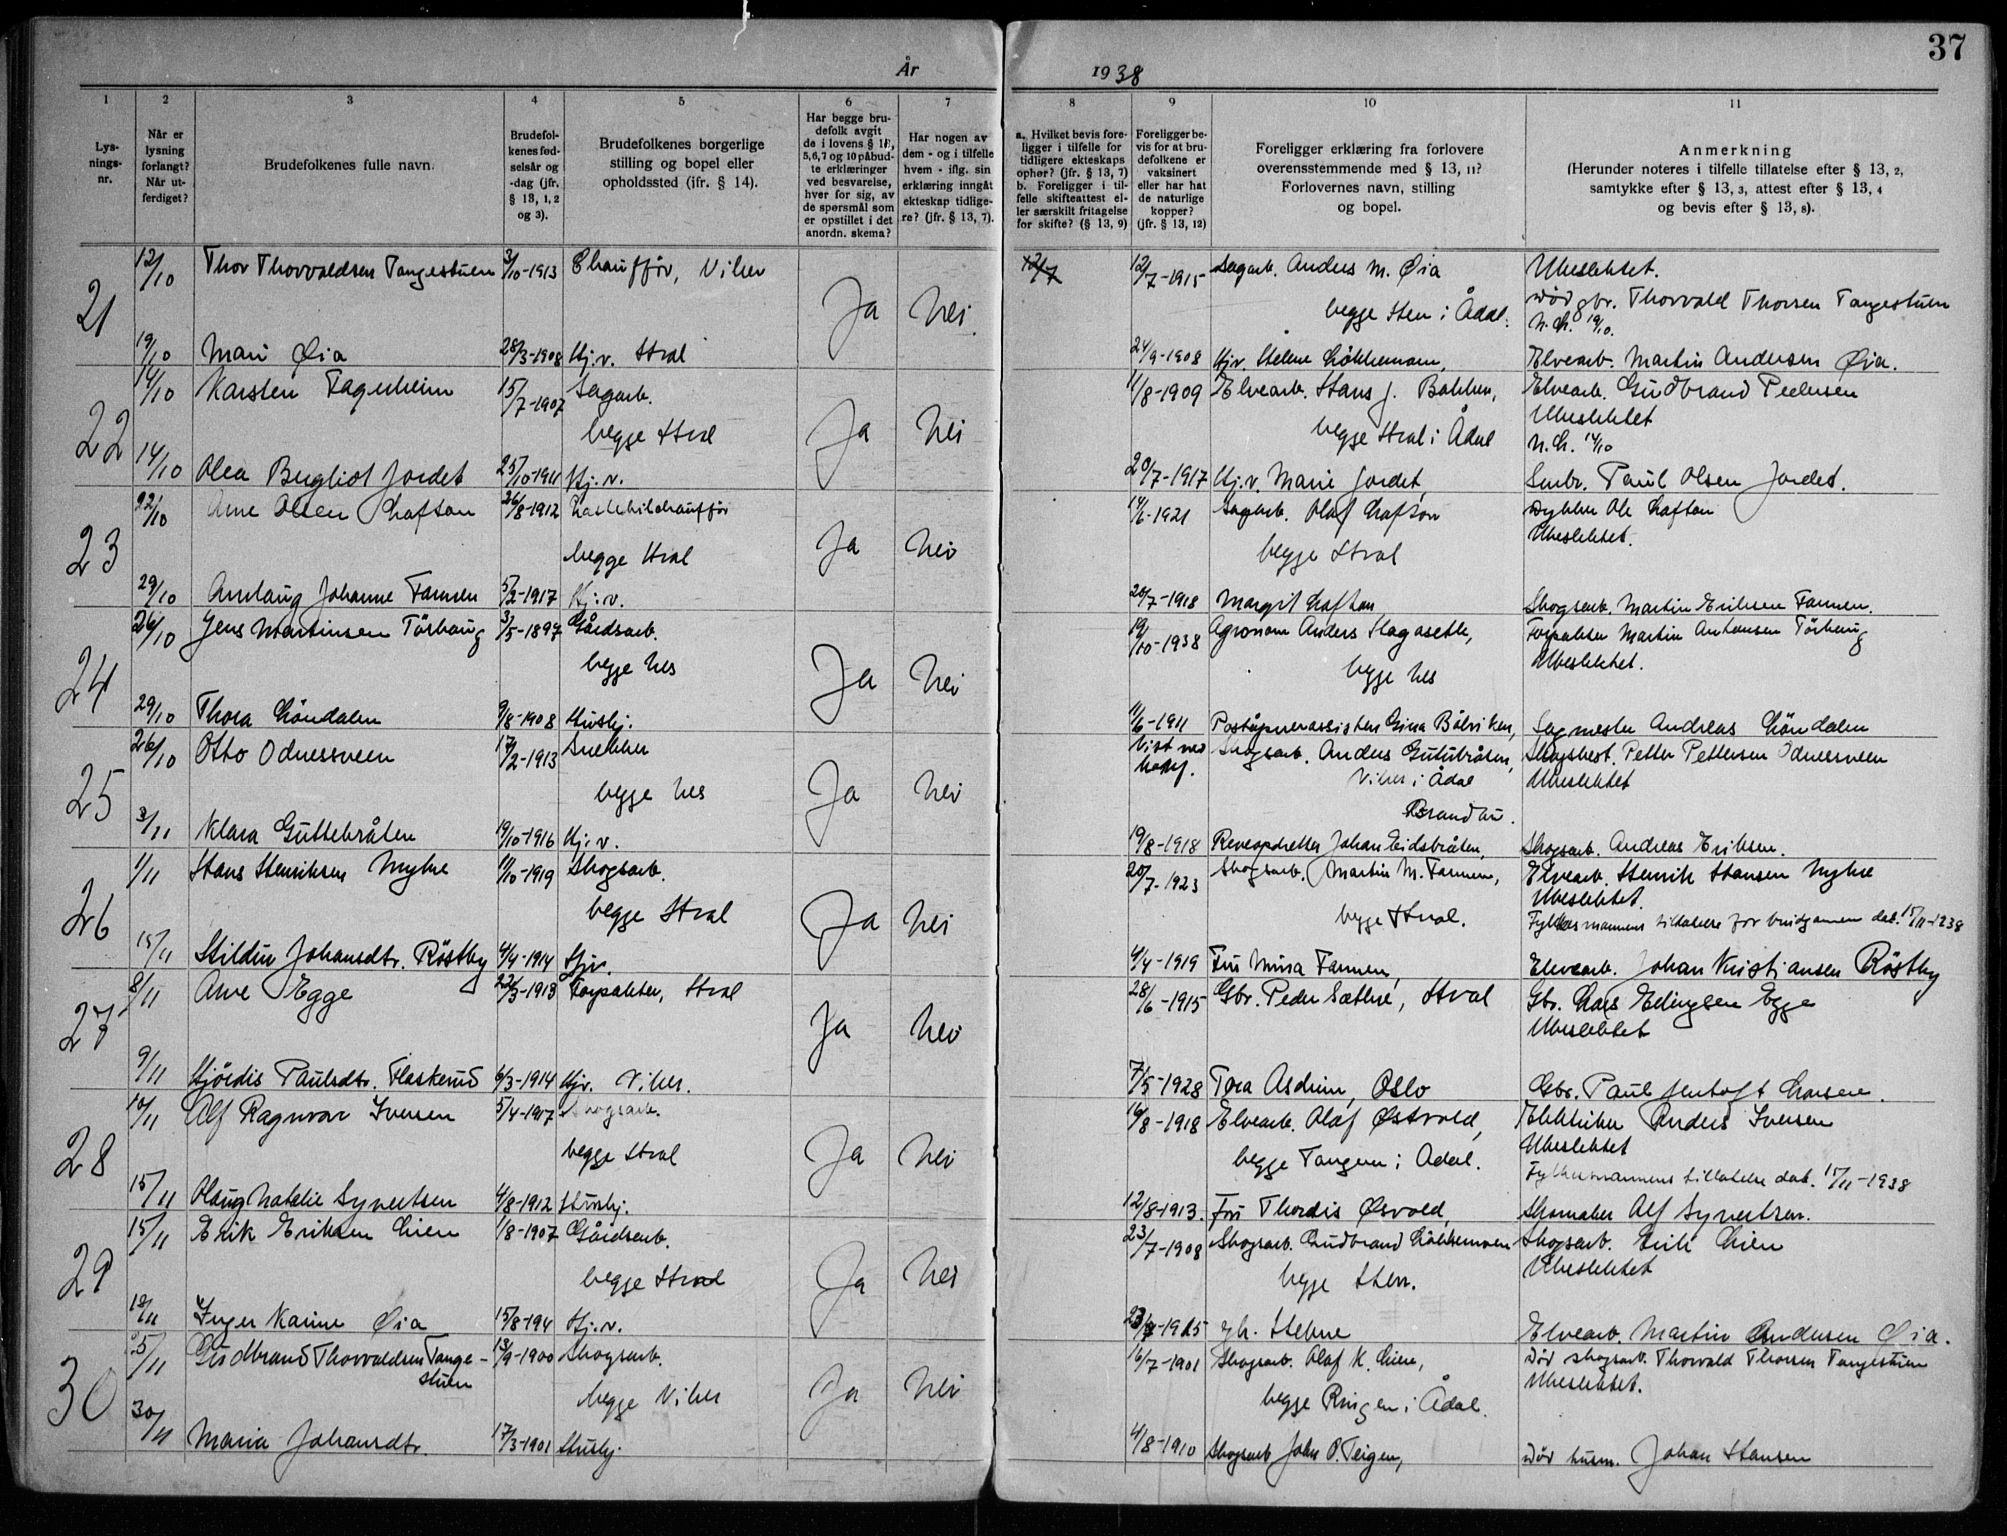 37
År 1938
1
2
3
4
5
6
7
8
9
10
11
Lys-
nings-
nr.
Når er
lysning
forlangt?
Når ut-
ferdiget?
Brudefolkenes fulle navn.
Brudefol-
kenes fød-
selsår og
-dag (jfr.
§ 13, 1, 2
og 3).
Brudefolkenes borgerlige
stilling og bopel eller
opholdssted (ifr. § 14).
Har begge bru-
defolk avgit
de i lovens § 1,
5, 6, 7 og 10 påbud-
te erklæringer
ved besvarelse,
hver for sig, av
de spørsmål som
er opstillet i det
anordn. skema?
Har nogen av
dem - og i tilfelle
hvem - iflg. sin
erklæring inngått
ekteskap tidlige-
re? (jfr. § 13, 7).
a. Hvilket bevis fore-
ligger i tilfelle for
tidligere ekteskaps
ophør? (jfr. § 13, 7)
b. Foreligger i til-
felle skifteattest el-
ler særskilt fritagelse
for skifte? (§ 13, 9)
Foreligger be-
vis for at bru-
defolkene er
vaksinert
eller har hat
de naturlige
kopper?
(jfr. § 13, 12)
Foreligger erklæring fra forlovere
overensstemmende med § 13, 11?
Forlovernes navn, stilling
og bopel.
Anmerkning
(Herunder noteres i tilfelle tillatelse efter § 13, 2,
samtykke efter § 13, 3, attest efter § 13, 4
og bevis efter § 13, 8).
21
12/10 Thor Thorvaldsen Tangestuen 3/10-1913 Chauffør, Viker
Ja Nei
12/7 12/7-1915 Sagarb. Anders M. Øia Ubeslektet.
død gbr. Thorvald Thorsen Tangestuen
begge Sten i Ådal. N.L. 19/10.
19/10 Mari Øia 28/3-1908 Hj.v. Hval 24/9-1908 Hjv. Helene Løkkemoen, Elvearb. Martin Andersen Øia.
22
14/10 Karsten Fagerheim 15/7-1907 Sagarb. 11/8-1909 Elvearb. Hans J. Bakken, Elvearb. Gudbrand Pedersen
begge Hval Ja Nei begge Hval i Ådal Ubeslektet
N.L. 14/10
14/10 Olea Bergliot Jordet 25/10-1911 Hj.v. 20/7-1917 Hj.v. Marie Jordet, Smbr. Paul Olsen Jordet.
23
22/10 Arne Olsen Lafton 26/8-1912 Lastebilchauffør 14/6-1921 Sagarb. Olaf Lafton Dykker Ole Lafton
begge Hval Ja Nei begge Hval Ubeslektet.
29/10 Anlaug Johanne Farmen 5/2-1917 Hj.v. 20/7-1918 Margit Lafton, Skogsarb. Martin Eriksen Farmen.
24
26/10 Jens Martinsen Tørhaug 3/5-1897 Gårdsarb. 19/10-1938 Agronom Anders Hagasette, Forpakter Martin Antonsen Tørhaug
begge Nes Ja Nei begge Nes Ubeslektet.
29/10 Thora Løndalen 9/8-1908 Hushj. 11/6-1911 Poståpnerassistent Gina Bålviken, Sagmester Andreas Løndalen
25
26/10 Otto Odnesveen 17/2-1913 Snekker Vist ved Skogsarb. Anders Guttebråten, Skogsbest. Petter Pettersen Odnesveen
begge Nes Ja Nei Viker i Ådal Ubeslektet
Brandbu.
3/11 Klara Guttebråten 19/10-1916 Hj.v. 19/8-1918 Reveopdretter Johan Eidsbråten, Skogsarb. Andreas Eriksen.
26
1/11 Hans Henriksen Myhre 11/10-1919 Skogsarb. 20/7-1923 Skogsarb. Martin M. Farmen, Elvearb. Henrik Hansen Myhre
begge Hval Ja Nei begge Hval. Ubeslektet.
Fylkesmannens tillatelse for brudgommen dat. 15/11-1938
15/11 Hildur Johansdtr. Røstby 4/4-1914 Hjv. 4/4-1919 Fru Mina Farmen, Elvearb. Johan Kristiansen Røstby
27
8/11 Arve Egge 22/3-1913 Forpakter, Hval 28/6-1915 Gbr. Peder Sæthre, Hval Gbr. Lars Erlingsen Egge
Ja Nei Ubeslektet
9/11 Hjørdis Paulsdtr. Flaskerud 6/3-1914 Hjv. Viker. 7/5-1928 Tora Asdim, Oslo Gbr. Paul Jentoft Larsen.
28
10/11 Alf Ragnvar Iversen 5/4-1917 Skogsarb. 16/8-1918 Elvearb. Olaf Østvold, Elektriker Anders Iversen
begge Hval Ja Nei begge Tangen i Ådal. Ubeslektet
Fylkesmannens tillatelse dat. 15/11-1938
15/11 Olaug Natalie Syvertsen 4/8-1912 Hushj. 12/8-1913. Fru Thordis Øsvold, Skomaker Alf Syvertsen.
29
15/11 Erik Eriksen Lien 1/8-1907 Gårdsarb. 23/7-1908 Skogsarb. Gudbrand Løkkemoen Skogsarb. Erik Lien
begge Hval Ja Nei begge Sten. Ubeslektet
18/11 Inger Karine Øia 15/8-194 Hj.v. 23/7-1915 Elvearb. Martin Andersen Øia.
30
25/11 Gudbrand Thorvaldsen Tange- 13/9-1900 Skogsarb. 16/7-1901 Skogsarb. Olaf K. Liere, Død skogsarb. Thorvald Thorsen Tangestuen
stuen begge Viker Ja Nei begge Ringen i Ådal. Ubeslektet.
30/11 Maria Johansdtr. 17/3-1901 Hushj. 4/8-1910 Skogsarb John P. Teigen, Død husm. Johan Hansen